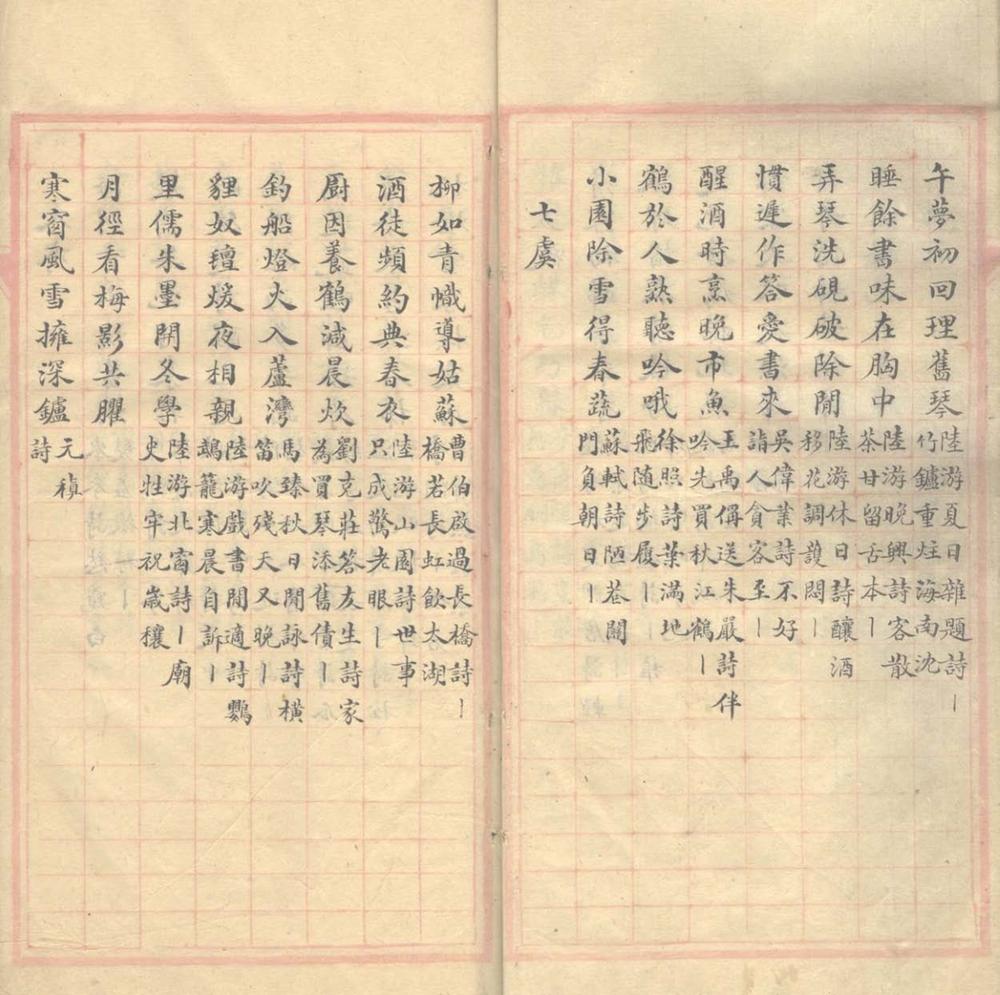 午夢初回理舊琴 陸游夏日雜題詩丨竹鑪重炷海南沈
睡餘書味在胸中 陸游晚興詩客散茶甘留舌本丨
弄琴洗硯破除閒 陸游休日詩釀酒移花調護悶丨
慣遲作答愛書來 吳偉業詩不好詣人貪客至丨
醒酒時烹晚市魚 王禹偁送朱嚴詩伴吟先買秋江鶴丨
鶴於人熟聽吟哦 徐照詩葉滿地飛随步屧丨
小園除雪得春蔬 蘇軾詩陋巷關門負朝日丨
七虞
柳如青幟導姑蘇 曹伯啟過長橋詩丨橋若長虹飲太湖
酒徒頻約典春衣 陸游山園詩世事只成驚老眼丨
厨因養鶴減晨炊 劉克莊答友生詩家為買琴添舊債丨
釣船燈火入蘆灣 馬臻秋日閒詠詩橫笛吹殘天又晚丨
貍奴氊煖夜相親 陸游戲書閒適詩鸚鵡籠寒晨自訴丨
里儒朱墨開冬學 陸游北窗詩丨廟史牲牢祝歲穰
月徑看梅影共臞
寒窗風雪擁深鑪 元稹詩